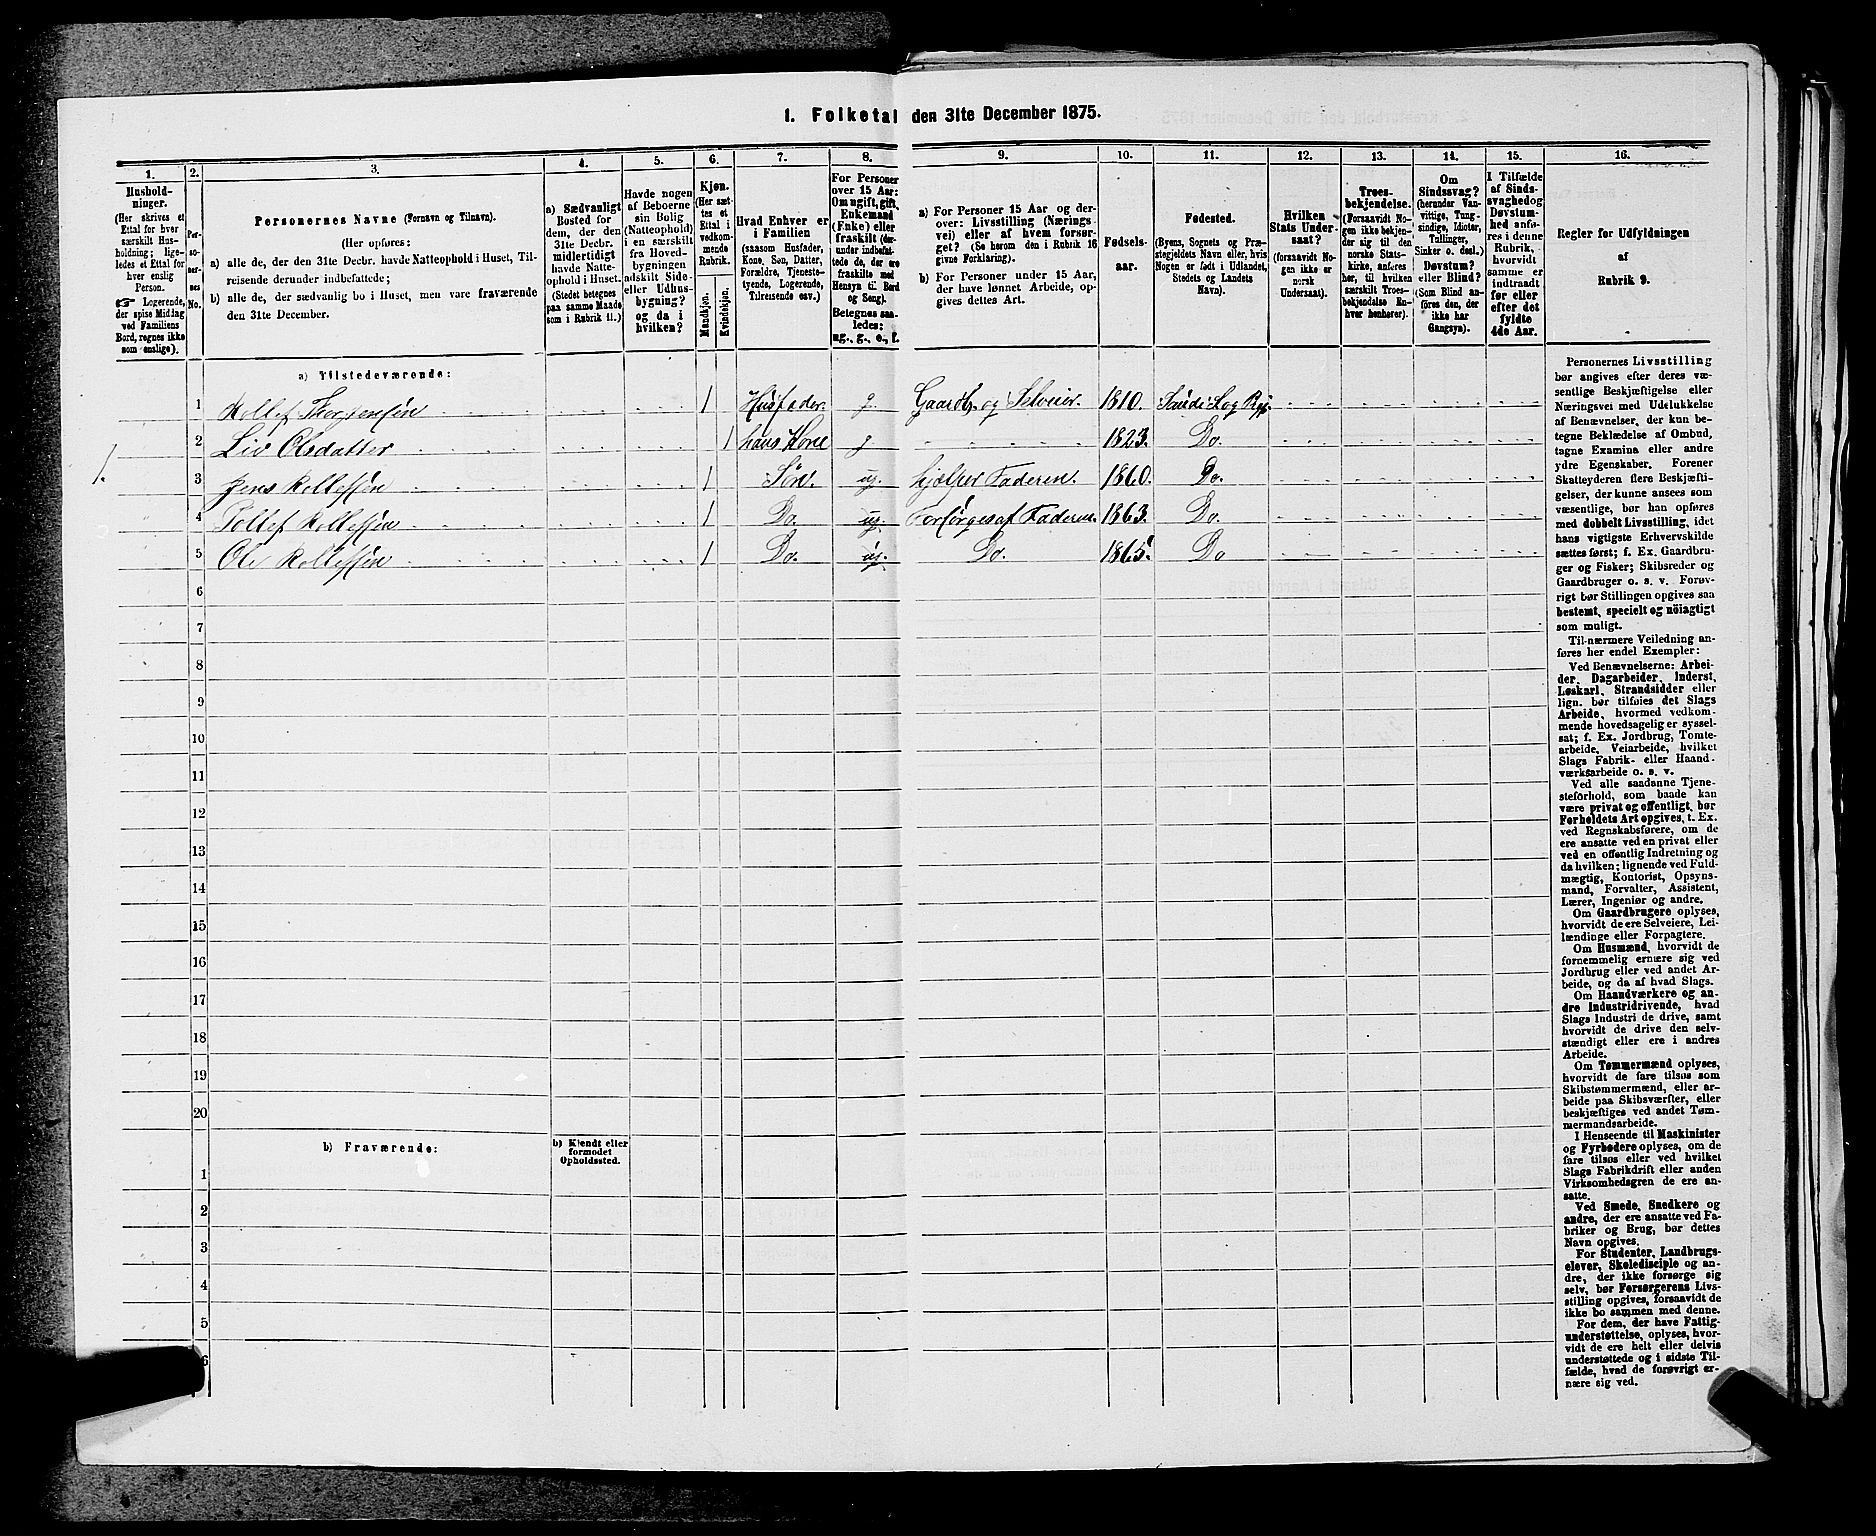 1. Folketal den 31te December 1875.
1.
2.
3.
4.
5.
6.
7.
8.
9.
10.
11.
12.
13.
14.
15.
16.
Hushold-
ninger.
(Her skrives et
Ettal for hver
særskilt Hus-
holdning; lige-
ledes et Ettal for
hver enslig
Person.
☞ Logerende,
der spise Middag
ved Familiens
Bord, regnes ikke
som enslige).
Per-
so-
ner-
nes
No.
Personernes Navne (Fornavn og Tilnavn).
(Her opføres:
a) alle de, der den 31te Decbr. havde Natteophold i Huset, Til-
reisende derunder indbefattede;
b) alle de, der sædvanlig bo i Huset, men vare fraværende
den 31te December.
a) Sædvanligt
Bosted for
dem, der den
31te Decbr.
midlertidigt
havde Natte-
ophold i Huset.
(Stedet betegnes
paa samme Maade
som i Rubrik 11.)
Havde nogen
af Beboerne
sin Bolig
(Natteophold)
i en særskilt
fra Hoved-
bygningen
adskilt Side-
eller Udhus-
bygning?
og da i
hvilken?
Kjøn.
(Her sæt-
tes et
Ettal i
vedkom-
mende
Rubrik.
Mandkjøn.
Kvindekjøn.
Hvad Enhver er
i Familien
(saasom Husfader,
Kone, Søn, Datter,
Forældre, Tjeneste-
tyende, Logerende,
Tilreisende osv.)
For Personer
over 15 Aar:
Om ugift, gift,
Enkemand
(Enke) eller
fraskilt (der-
under indbefat-
tede de, der ere
fraskilte med
Hensyn til Bord
og Seng).
Betegnes saa-
ledes:
ug., g., e., f.
a) For Personer 15 Aar og der-
over: Livsstilling (Nærings
vei) eller af hvem forsør-
get? (Se herom den i Rubrik 16
givne Forklaring).
b) For Personer under 15 Aar,
der have lønnet Arbeide, op-
gives dettes Art.
Fødsels-
aar.
Fødested.
(Byens, Sognets og Præ-
stegjeldets Navn eller, hvis
Nogen er født i Udlandet,
Stedets og Landets
Navn).
Hvilken
Stats Under-
saat?
(forsaavidt No-
gen ikke er
norsk
Undersaat).
Troes-
bekjendelse.
(Forsaavidt No-
gen ikke bekjen-
der sig til den
norske Stats-
kirke, anføres
her, til hvilken
særskilt Troes-
bekjendelse En-
hver henhører).
Om
Sindssvag?
(herunder Van-
vittige, Tung-
sindige, Idioter,
Tullinger,
Sinker o. desl.)
Døvstum?
eller Blind?
(Som Blind an-
føres den, der
ikke har
Gangsyn).
I Tilfælde
af Sinds-
svaghed og
Døvstum-
hed anfø-
res i denne
Rubrik,
hvorvidt
samme er
indtraadt
før eller
efter det
fyldte
4de Aar.
Regler for Udfyldningen
af
Rubrik 9.
a) Tilstedeværende:
1 Rollef Torjensen 1 Husfader g. Gaardb. og Selveier. 1810.
2 Liv Olsdatter 1 hans Kone g 1823. Do.
1. 3 Jens Rollefsen 1 Søn. ug. hjælper Faderen. 1860. Do.
4 Rollefsen 1 Do. ug. Forsørges af Faderen. 1863. Do.
5 Ole Rollefsen 1 Do. ug. Do. 1865 Do
6
7
8
9
10
11
12
13
14
15
16
17
18
19
20
b) Fraværende:
b) Kjendt eller
formodet
Opholdssted.
1
2
3
4
5
6
Personernes Livsstilling
bør angives efter deres væ-
sentlige Beskjæftigelse eller
Næringsvei med Udelukkelse
af Benævnelser, der kun be-
tegne Beklædelse af Ombud,
tagne Examina eller andre
ydre Egenskaber. Forener
Skatteyderen flere Beskjæfti-
gelser, der kunne ansees som
væsentlige, bør han opføres
med dobbelt Livsstilling, idet
hans vigtigste Erhvervskilde
sættes først; f. Ex. Gaardbru-
ger og Fisker; Skibsreder og
Gaardbruger o. s. v. Forøv-
rigt bør Stillingen opgives saa
bestemt, specielt og nöiagtigt
som muligt.
Til-nærmere Veiledning an-
føres her endel Exempler:
Ved Benævnelserne: Arbei-
der, Dagarbeider, Inderst,
Løskarl, Strandsidder eller
lign. bør tilføies det Slags
Arbeide, hvormed vedkom-
mende hovedsagelig er syssel-
sat; f. Ex. Jordbrug, Tomte-
arbeide, Veiarbeide, hvilket
Slags Fabrik- eller Haand-
værksarbeide o. s. v.
Ved alle saadanne Tjene-
steforhold, som baade kan
være privat og offentligt, bør
Forholdets Art opgives, t. Ex.
ved Regnskabsførere, om de
ere ansatte ved en privat eller
ved en offentlig Indretning og
da hvilken; lignende ved Fuld-
mægtig, Kontorist, Opsyns-
mand, Forvalter, Assistent,
Lærer, Ingeniør og andre.
Om Gaardbrugere oplyses,
hvorvidt de ere Selveiere, Lei-
lændinge eller Forpagtere.
Om Husmænd, hvorvidt de
fornemmelig ernære sig ved
Jordbrug eller ved andet Ar-
beide, og da af hvad Slags.
Om Haandværkere og an-
dre Industridrivende, hvad
Slags Industri de drive, samt
hvorvidt de drive den selv-
stændigt eller ere i andres
Arbeide.
Om Tømmermænd oplyses,
hvorvidt de fare tilsøs som
Skibstømmermænd, eller ar-
beide paa Skibsværfter, eller
beskjæftiges ved andet Tøm-
mermandsarbeide.
I Henseende til Maskinister
og Fyrbødere oplyses, om de
fare tilsøs eller ved hvilket
Slags Fabrikdrift eller anden
Virksomhedsgren de ere an-
satte.
Ved Smede, Snedkere og
andre, der ere ansatte ved Fa-
briker og Brug, bør dettes
Navn opgives.
For Studenter, Landbrugs-
elever, Skoledisciple og an-
dre, der ikke forsørge sig
selv, bør Forsørgerens Livs-
stilling opgives, forsaavidt de
ikke bo sammen med denne.
For dem, der have Fattig-
understøttelse, oplyses, hvor-
vidt de ere helt eller delvis
understøttede og i sidste Til-
fælde, hvad de forøvrigt er-
nære sig ved.